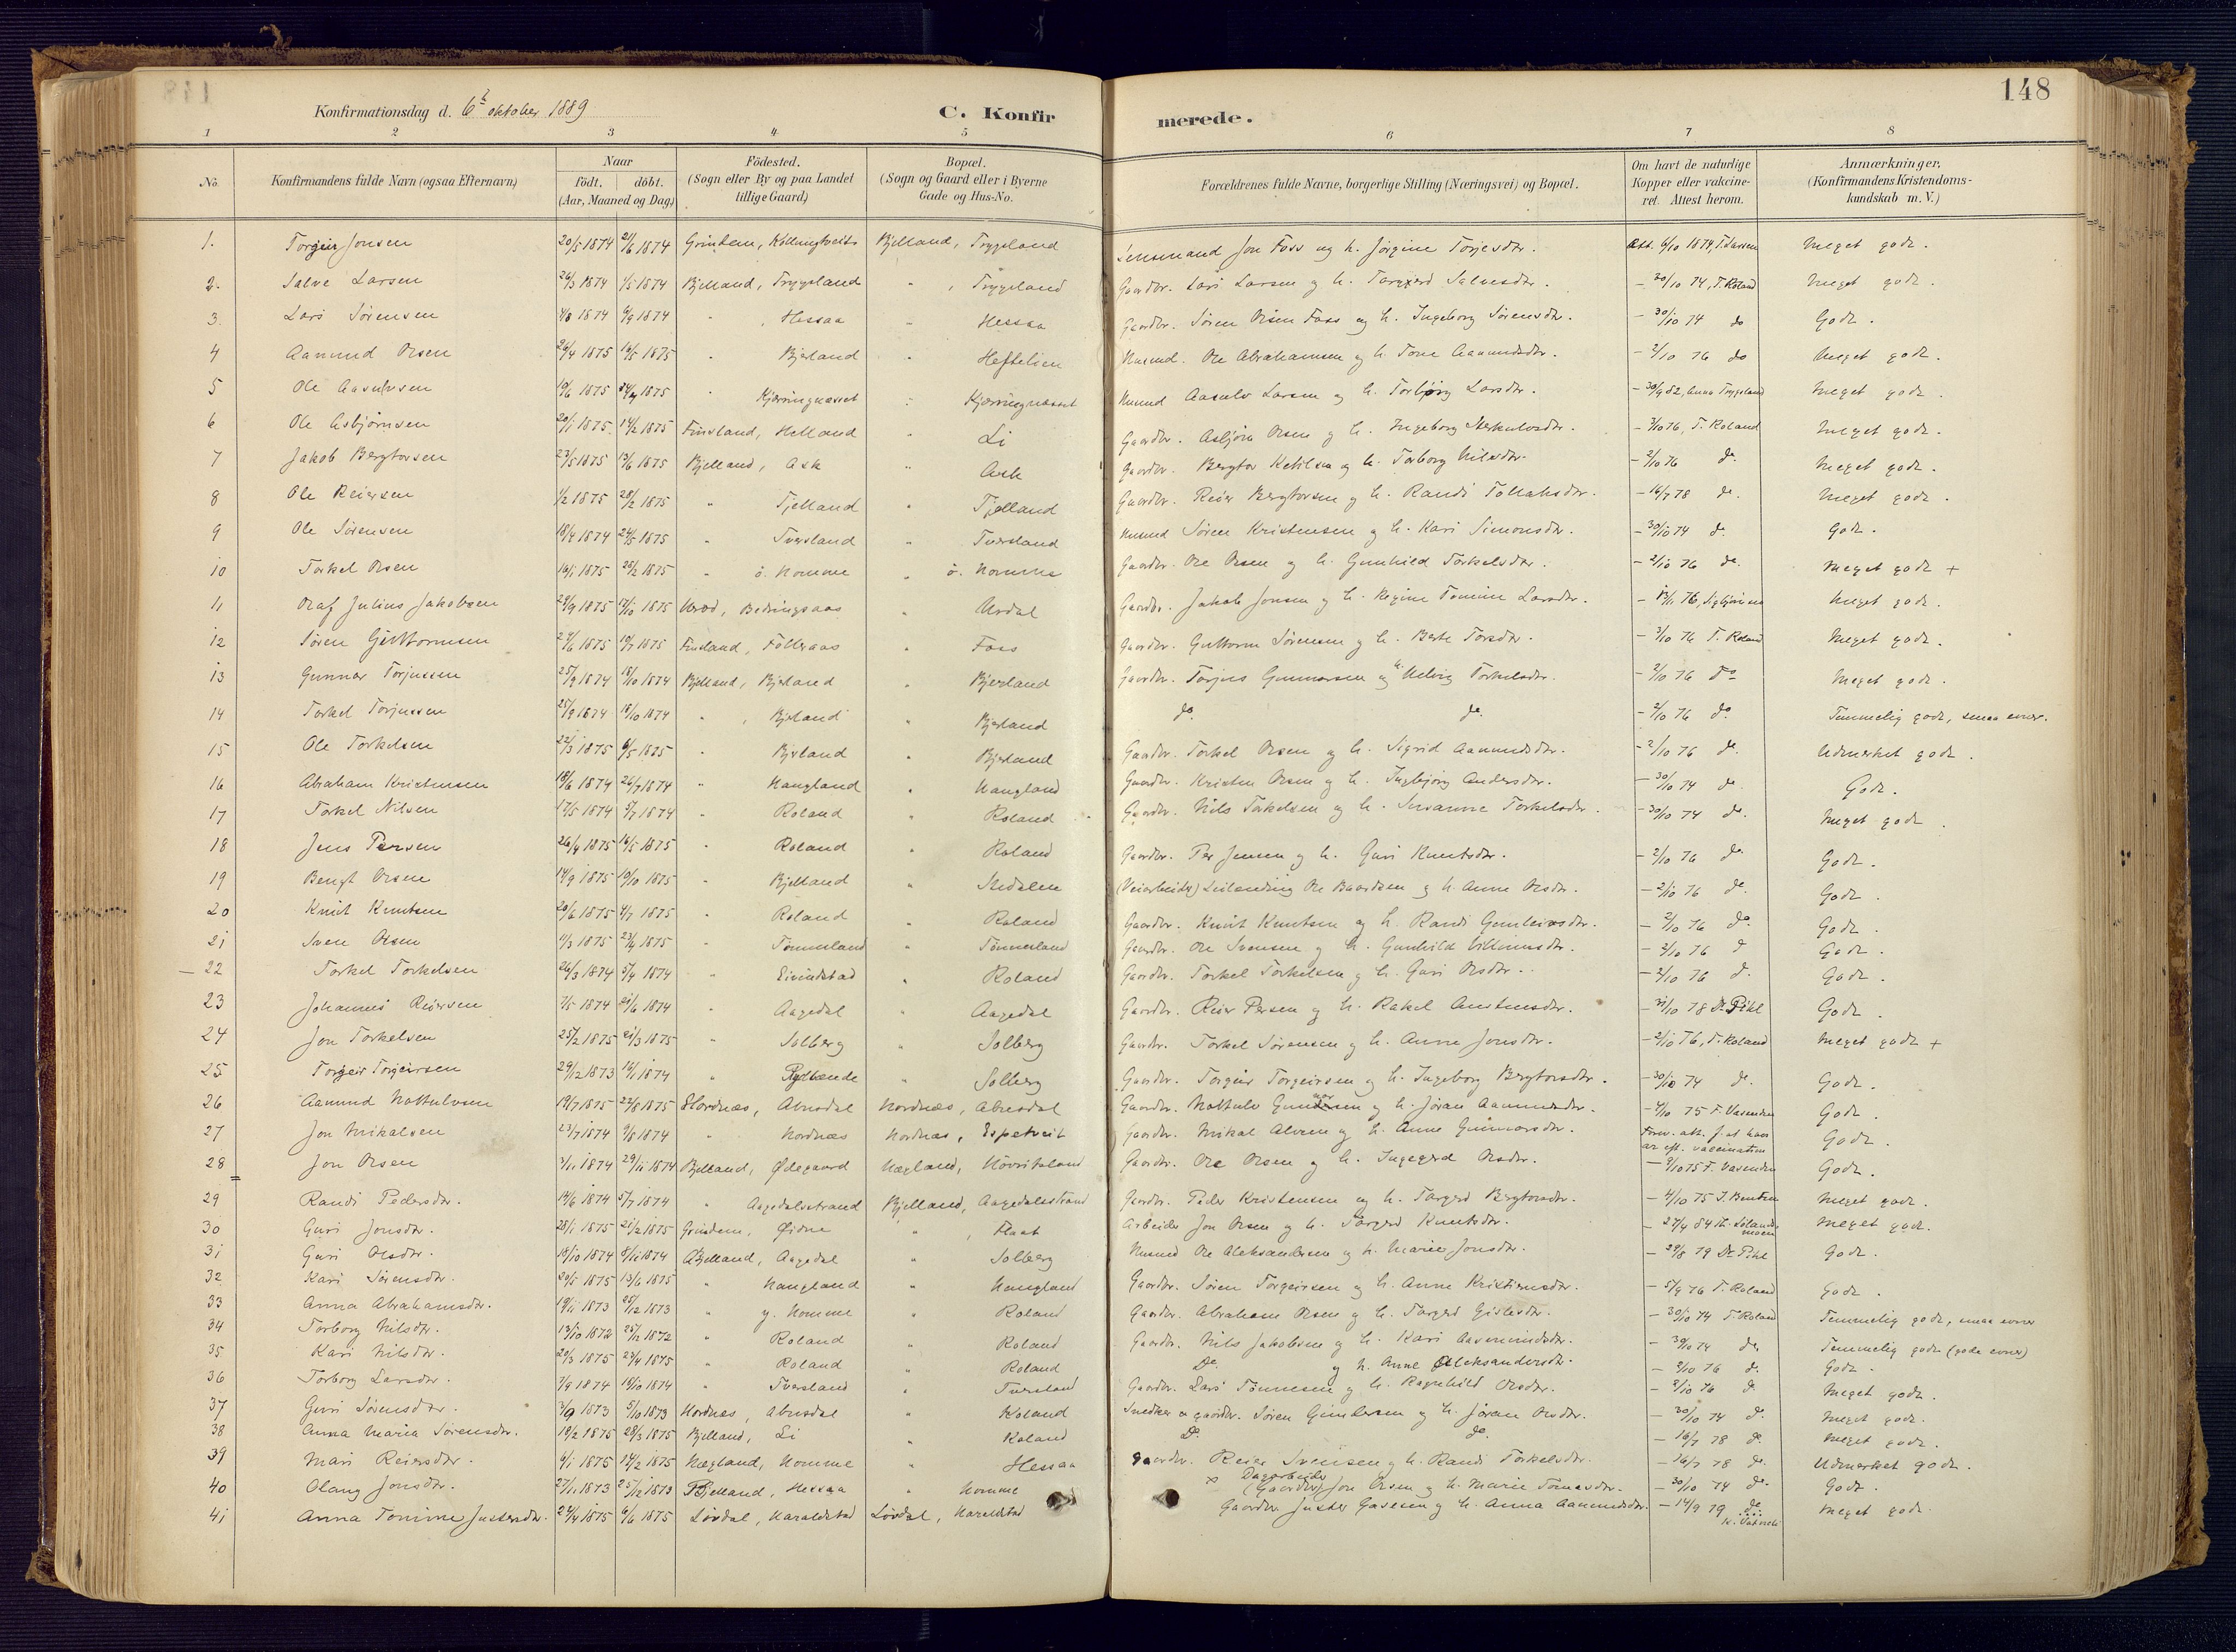 148
Konfirmationsdag d. 6t oktober 1889 C. Konfirmerede.
1 2 3 4 5 6 7 8
No. Konfirmandens fulde Navn (ogsaa Efternavn) Naar födt. döbt. (Aar, Maaned og Dag) Födested. (Sogn eller By og paa Landet tillige Gaard) Bopæl. (Sogn og Gaard eller i Byerne Gade og Hus-No. Forældrenes fulde Navne, borgerlige Stilling (Næringsvei) og Bopæl. Om havt de naturlige Kopper eller vakcineret. Attest herom. Anmærkninger. (Konfirmandens Kristendomskundskab m. V.)
1. Torgeir Jonsen 20/5 1874 21/6 1874 Grindem, Bjelland, Trygsland Lensmand Jon Foss og h. Jörgine Torjesdtr. Att. 6/10 1874, T. Larsen Meget godt.
2. Salve Larsen 26/3 1874 1/5 1874 Bjelland, Trygsland " , Trygsland Gaardbr. Lars Larsen og h. Targjerd Salvesdtr. - 30/10 74, T. Roland Meget godt.
3. Lars Sörensen 4/8 1874 6/9 1874 " , Hessaa " Hessaa Gaardbr. Sören Olsen Foss og h. Ingeborg Sörensdtr. - 30/10 74 do Godt.
4 Aanund Olsen 26/4 1875 16/5 1875 " Bjerland " Heftelien Husmd. Ole Abrahamsen og h. Tone Aanundsdtr. - 2/10 76 do Meget godt.
5 Ole Aasulvsen 10/6 1875 1875 " Kjærringnesset " Kjærringnesset Husmd Aasulv Larsen og h. Torbjörg Larsdtr. - 30/9 82, Anna Trygsland Meget godt.
6 Ole Asbjörnsen 20/1 1875 14/2 1875 Finsland, Helland " Li Gaardbr. Asbjörn Olsen og h. Ingeborg Sterkulvsdtr. - 3/10 76, T. Roland Meget godt.
7 Jakob Bergtorsen 23/5 1875 13/6 1875 Bjelland, Ask " Ask Gaardbr. Bergtor Ketilsen og h. Torborg Nilsdtr. - 2/10 76 do. Meget godt.
8 Ole Reiersen 1/2 1875 28/2 1875 " Tjelland " Tjelland Gaardbr. Reier Bergtorsen og h. Randi Tollaksdtr. - 16/7 78 do. Meget godt.
9 Ole Sörensen 18/4 1874 24/5 1875 " Tversland " Tversland Husmd Sören Kristensen og h. Kari Simonsdtr. - 30/10 74 do. Godt.
10 Torkel Olsen 16/1 1875 28/2 1875 " ö. Homme " ö. Homme Gaardbr. Ole Olsen og h. Gunhild Torkelsdtr. - 2/10 76 do. Meget godt +
11 Olaf Julius Jakobsen 29/9 1875 17/10 1875 Bedringsaas " Urdal Gaardbr. Jakob Jonsen og h. Regine Tomine Larsdtr. Meget godt.
12 Sören Guttormsen 24/6 1875 19/7 1875 Finsland, Fölleraas " Foss Gaardbr. Guttorm Sörensen og h. Berte Torsdtr. - 3/10 76 T. Roland Meget godt.
13 Gunnar Torjussen 25/9 1874 18/10 1874 Bjelland, Bjerland " Bjerland Gaardbr. Torjus Gunnarsen og h. Helvig Torkelsdtr. - 2/10 76 do Meget godt.
14 Torkel Torjussen 25/9 1874 18/10 1874 " , Bjerland " Bjerland do. do. - 2/10 76 do Temmelig godt, smaa evner.
15 Ole Torkelsen 22/3 1875 6/5 1875 " Bjerland " Bjerland Gaardbr. Torkel Olsen og h. Sigrid Aanundsdtr. - 2/10 76 do. Udmerket godt.
16 Abraham Kristensen 18/6 1874 26/7 1874 " Haugland " Haugland Gaardbr. Kristen Olsen og h. Ingbjörg Andersdtr. - 30/10 74 do Godt.
17 Torkel Nilsen 17/5 1874 5/7 1874 " Roland " Roland Gaardbr. Nils Torkelsen og h. Susanne Torkelsdtr. - 30/10 74 do. Meget godt.
18 Jens Persen 26/4 1875 16/5 1875 " Roland " Roland Gaardbr. Per Jensen og h. Guri Knutsdtr. - 2/10 76 do Godt.
19 Bengt Olsen 14/9 1875 10/10 1875 " Bjelland " Stedalen (Veiarbeider) Leilænding Ole Baardsen og h. Anne Olsdtr. - 2/10 76 do. Godt.
20 Knut Knutsen 20/6 1875 4/7 1875 " Roland " Roland Gaardbr. Knut Knutsen og h. Randi Gunleivsdtr. - 2/10 76 do Godt.
21 Sven Olsen 4/3 1875 23/4 1875 " Tönnesland " Tönnesland Gaardbr. Ole Svensen og h. Gunhild Villumsdtr. - 2/10 76 d Godt.
22 Torkel Torkelsen 26/3 1874 5/4 1874 " Eivindstad " Roland Gaardbr. Torkel Torkelsen og h. Guri Olsdtr. - 2/10 76 d. Godt.
23 Johannes Reiersen 7/5 1874 21/6 1874 " Aagedal " Aagedal Gaardbr. Reier Persen og h. Rakel Anstensdtr. - 31/10 78 Dr Pihl Godt.
24 Jon Torkelsen 25/2 1875 21/3 1875 " Solberg " Solberg Gaardbr. Torkel Sörensen og h. Anne Jonsdtr. - 2/10 76, T. Roland Meget godt +
25 Torgeir Torgeirsen 29/12 1873 16/1 1874 " " Solberg Gaardbr. Torgeir Torgeirsen og h. Ingeborg Bergtorsdtr. - 30/10 74 do. Godt.
26 Aanund Nottulvsen 19/7 1875 22/8 1875 Hordnæs, Abusdal Hordnæs, Abusdal Gaardbr. Nottulv og h. Jöran Aanundsdtr. - 4/10 75 F. Vasenden Godt.
27 Jon Mikalsen 23/7 1874 9/8 1874 " Hordnæs Hordnæs, Espetveit Gaardbr. Mikal Alvsen og h. Anne Gunnarsdtr. Forev. att. f. at have ar eft. vaccination Godt.
28 Jon Olsen 3/11 1874 29/11 1874 Bjelland, Ødegaard Hægland, Gaardbr. Ole Olsen og h. Ingegerd Olsdtr. - 9/10 75 F. Vasenden Godt.
29 Randi Pedersdtr. 14/6 1874 5/7 1874 " Aagedalsstrand Bjelland, Aagedalsstrand Gaardbr. Peder Kristensen og h. Targerd Bergtorsdtr. - 4/10 75 J. Bentsen Meget godt.
30 Guri Jonsdtr. 28/1 1875 21/2 1875 Grindem, Øidne " , Flaat Arbeider Jon Olsen og h. Targerd Knutsdtr. - 27/4 84 Meget godt.
31 Guri Olsdtr. 18/10 1874 8/11 1874 Bjelland, Aagedal " Solberg Husmd Ole Aleksandersen og h. Marie Jonsdtr. - 29/8 79 Dr Pihl Godt.
32 Kari Sörensdtr. 20/5 1875 13/6 1875 " Haugland " Haugland Gaardbr. Sören Torgeirsen og h. Anne Kristiensdtr. - 5/9 76 T. Roland Godt.
33 Anna Abrahamsdtr. 19/11 1873 25/12 1873 " y. Homme " Roland Gaardbr. Abraham Olsen og h. Targerd Gislesdtr. - 30/10 74 T. Roland Temmelig godt, smaa evner
34 Torborg Nilsdtr. 13/10 1872 25/12 1872 " Roland " Roland Gaardbr. Nils Jakobsen og h. Kari Aasmundsdtr. - 30/10 74 do, Temmelig godt (gode evner)
35 Kari Nilsdtr. 20/3 1875 23/4 1875 " Roland " Roland Do. og h. Anne Aleksandersdtr. - 2/10 76 d. Godt.
36 Torborg Larsdtr. 7/9 1874 18/10 1874 " Tversland " Tversland Gaardbr. Lars Tönnesen og h. Ragnhild Olsdtr. - 2/10 76 d. Meget godt.
37 Guri Sörensdtr. 3/9 1873 5/10 1873 Hordnæs, Abusdal " Roland Snedker og gaardbr. Sören Gundersen og h. Jöran Olsdtr. - 30/10 74 do. Meget godt.
38 Anna Maria Sörensdtr. 18/2 1875 28/3 1875 Bjelland, Li " Roland Do. do. - 16/7 78 d. Meget godt.
39 Mari Reiersdtr. 6/1 1875 14/2 1875 Hægland, Homme " Hessaa Gaardbr. Reier Svensen og h. Randi Torkelsdtr. - 16/7 78 do. Udmerket godt.
40 Olaug Jonsdtr. 27/11 1873 25/12 1873 Bjelland, Hessaa " Homme x Dagarbeider (Gaardbr) Jon Olsen og h. Marie Tomasdtr. - 30/10 74 do. Godt.
41 Anna Tomine Justersdtr. 24/4 1875 6/6 1875 Lövdal, Haraldstad Lövdal, Haraldstad Gaardbr. Juster Gasesen og h. Anna Aanundsdtr. - 14/9 79 Meget godt